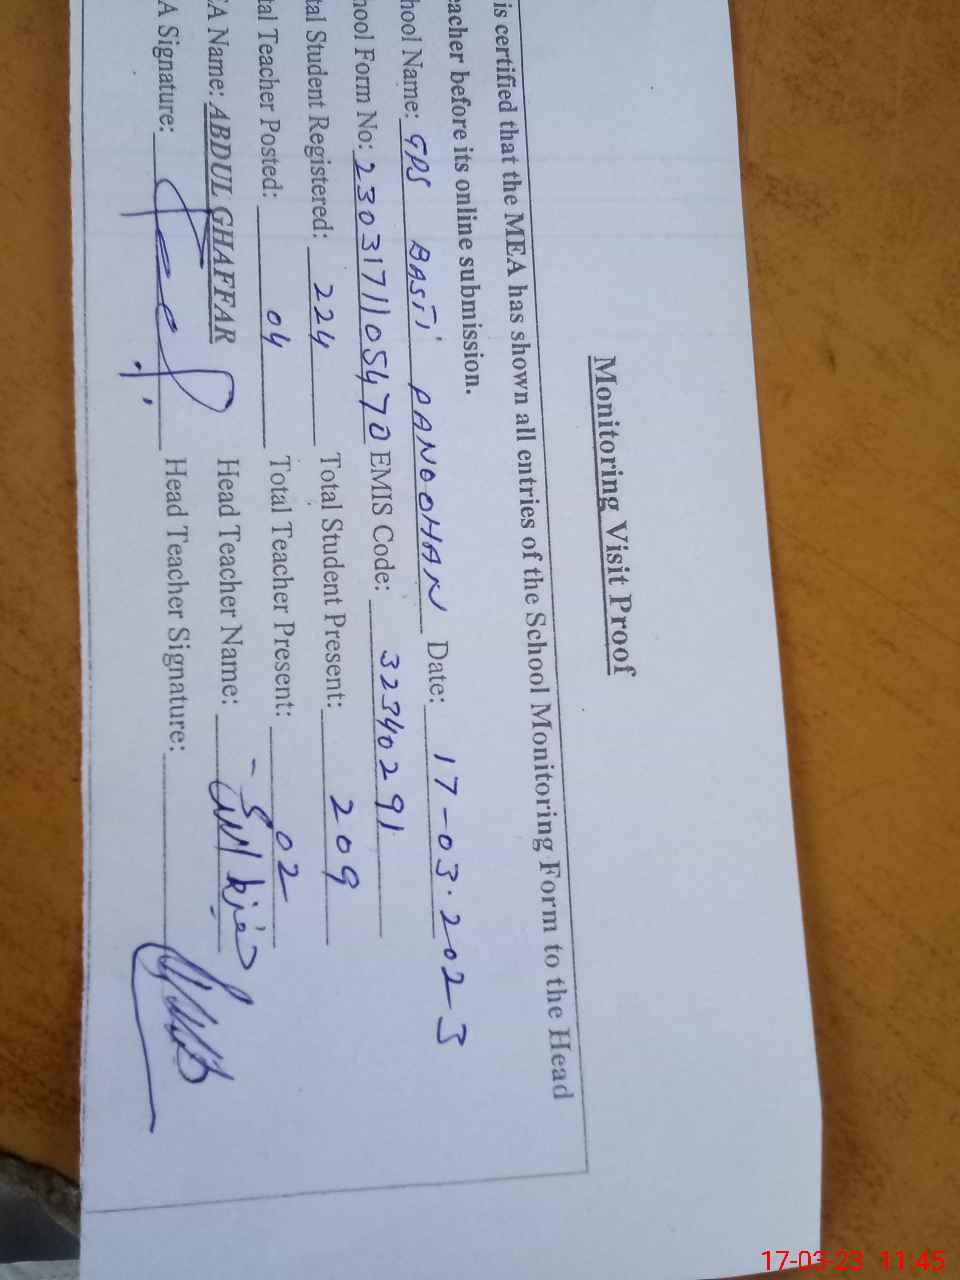 Monitoring Visit Proof
is certified that the MEA has shown all entries of the School Monitoring Form to the Head
eacher before its online submission.
hool Name: GPS BASTI PANOOHAN Date: 17-03.2023
hool Form No: 2303171105470 EMIS Code: 32340291
tal Student Registered: 224 Total Student Present: 209
tal Teacher Posted: 04 Total Teacher Present: 02
EA Name: ABDUL GHAFFAR Head Teacher Name:
A Signature: Head Teacher Signature:
17-03-23 11:45